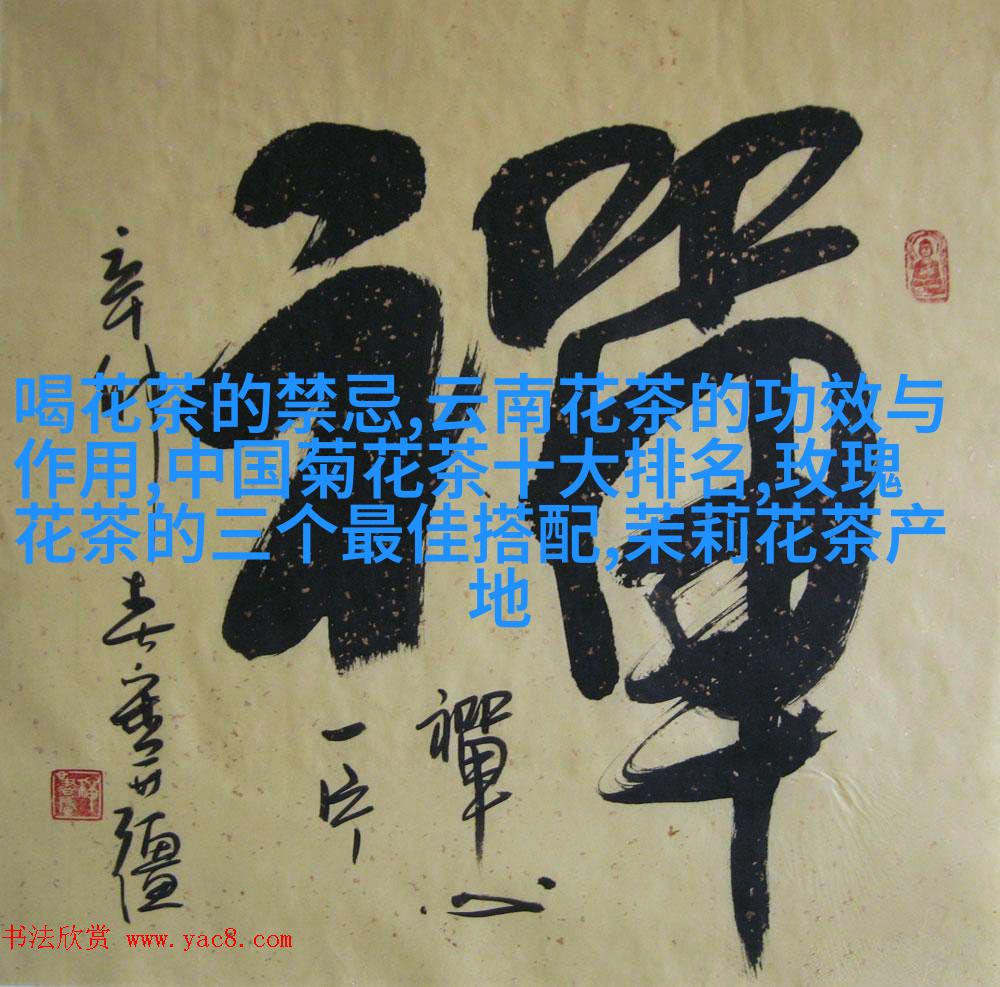 禪
禪心
一片
辛卯
喝花茶的禁忌,云南花茶的功效与
作用,中国菊花茶十大排名,玫瑰
花茶的三个最佳搭配,茉莉花茶产
地
书法欣赏 www.yac8.com